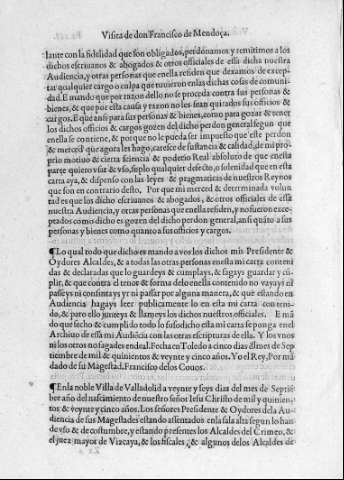 Visita de don Francisco de Mendoça.
lante con la fidelidad que son obligados, perdonamos y remitimos a los
dichos escriuanos & abogados & otros officiales de essa dicha nuestra
Audiencia, y otras personas que enella residen que dexamos de excep-
tar qualquier cargo o culpa que tuuieren enlas dichas cosas de comuni-
dad. E mando que por razon dello no se proceda contra sus personas &
bienes, & que por esta causa y razon no les sean quitados sus officios &
cargos. E que ansi para sus personas & bienes, como para gozar & tener
los dichos officios & cargos gozen del dicho perdon general segun que
enella se contiene, & porque no le pueda ser impuesto que este perdon
& merced que agora les hago, caresce de sustancia & calidad, de mi pro-
prio motiuo & cierta sciencia & poderio Real absoluto de que enesta
parte quiero vsar & vso, suplo qualquier defecto, o solenidad que en esta
carta aya, & dispenso con las leyes & pragmaticas de nuestros Reynos
que son en contrario desto, Por que mi merced & determinada volun
tad es que los dicho escriuanos & abogados, & otros officiales de essa
nuestra Audiencia, y otras personas que enella residen, y no fueron exce-
ptados como dicho es gozen del dicho perdon general, ansi quãto a sus
personas y bienes como quanto a sus officios y cargos.
¶Lo qual todo que dicho es mando a vos los dichos mis Presidente &
Oydores Alcaldes, & a todas las otras personas en esta mi carta conteni
das & declaradas que lo guardeys & cumplays, & fagays guardar y cũ-
plir, & que contra el tenor & forma delo enella contenido no vayays ni
passeys ni consintays yr ni passar por alguna manera, & que estando en
Audiencia hagays leer publicamente lo en esta mi carta conteni-
do, & para ello junteys & llameys los dichos nuestros officiales. E mã
do que fecho & cumplido todo lo susodicho esta mi carta se ponga enel
Archiuo de essa mi Audiẽcia con las otras escripturas de ella. Y los vnos
ni los otros no fagades ende al. Fecha en Toledo a cinco dias del mes de Sep
tiembre de mil & quinientos & veynte y cinco años. Yo el Rey, Por mã
dado de su Magestad. Francisco de los Couos.
¶Enla noble Villa de Valladolid a veynte y seys dias del mes de Septiẽ
bre año del nascimiento de nuestro señor Iesu Christo de mil y quinien-
tos & veynte y cinco años. Los señores Presidente & Oydores dela Au-
diencia de sus Magestades estando assentados enla sala alta segun lo han
de vso & de costumbre, y estando presentes los Alcaldes del Crimen, &
el juez mayor de Vizcaya, & los fiscales, & algunos delos Alcaldes de